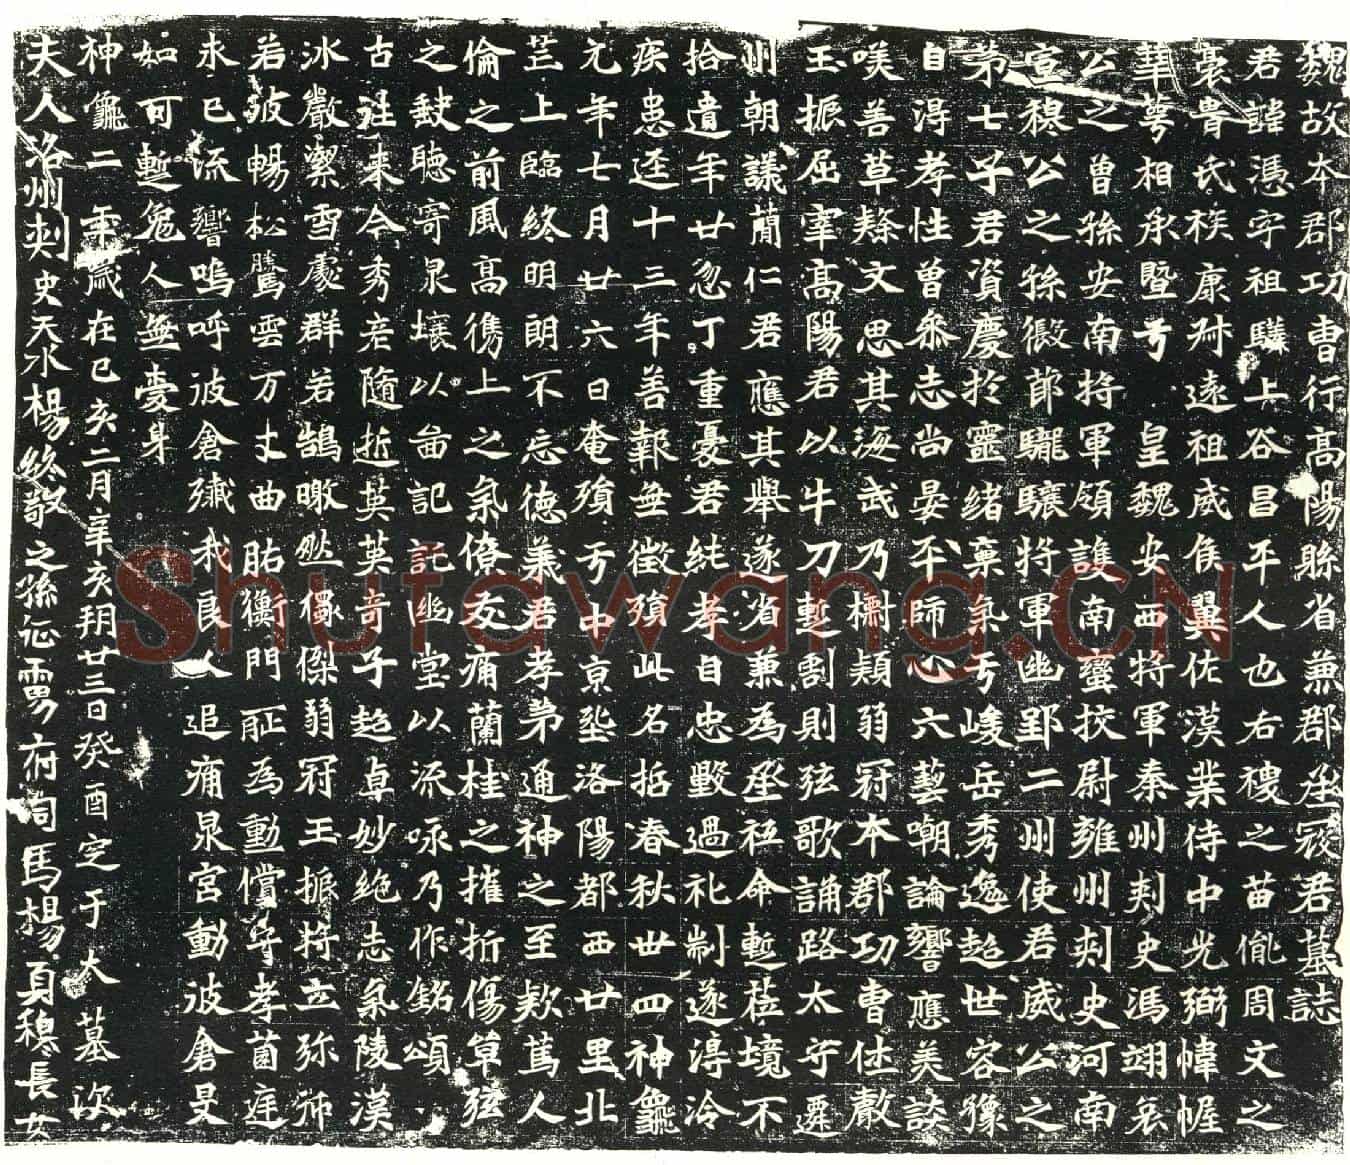 魏故本郡功曹行高陽縣省兼郡丞寇君墓誌
君諱憑字祖驎上谷昌平人也右稷之苗胤周文之
裔胄氏族康叔遠祖威侯翼佐漢業侍中光弼幃幄
華萼相承暨于皇魏安西將軍秦州刺史馮翊哀
公之曾孫安南將軍領護南蠻挍尉雍州刺史河南
宣穆公之孫假節龍驤將軍幽郢二州使君威公之
第七子君資慶於靈緒稟氣于峻岳秀逸超世容豫
自得孝性曾參志尚晏平師心六藝嘲論響應美談
咲善草隸文思其海武乃櫥穎弱冠本郡功曹仕敷
玉振屈宰高陽君以牛刀蹔割則弦歌誦路太守遷
州朝議簡仁君應其舉遂省兼為丞袛命蹔莅境不
拾遺年廿忽丁重憂君純孝自忠毀過礼制遂淂冷
疾患逕十三年善報無徵殞此名哲春秋卅四神龜
元年七月廿六日奄殞于中京埊洛陽都西廿里北
芒上臨終明朗不忘德義君孝弟通神之至欵篤人
倫之前風高儁上之氣僚友痛蘭桂之摧折傷草弦
之𡙇聽寄泉壤以啚記託幽堂以流咏乃作銘頌
古往來今秀彦隨逝英英奇子超卓妙絶志氣陵漢
冰嚴潔雪處群若鵠暾然獨傑弱冠王振將立弥沛
若披暢松騰雲万丈曲肱衡門耻為動償守孝菌庭
永已流響嗚呼彼倉殱我良人追痛泉宮動波倉旻
如可蹔免人無憂身
神龜二年歲在己亥二月辛亥朔廿三日癸酉定于大墓次
夫人洛州刾史天水楊終敬之孫征虜府司馬楊貞穆長女